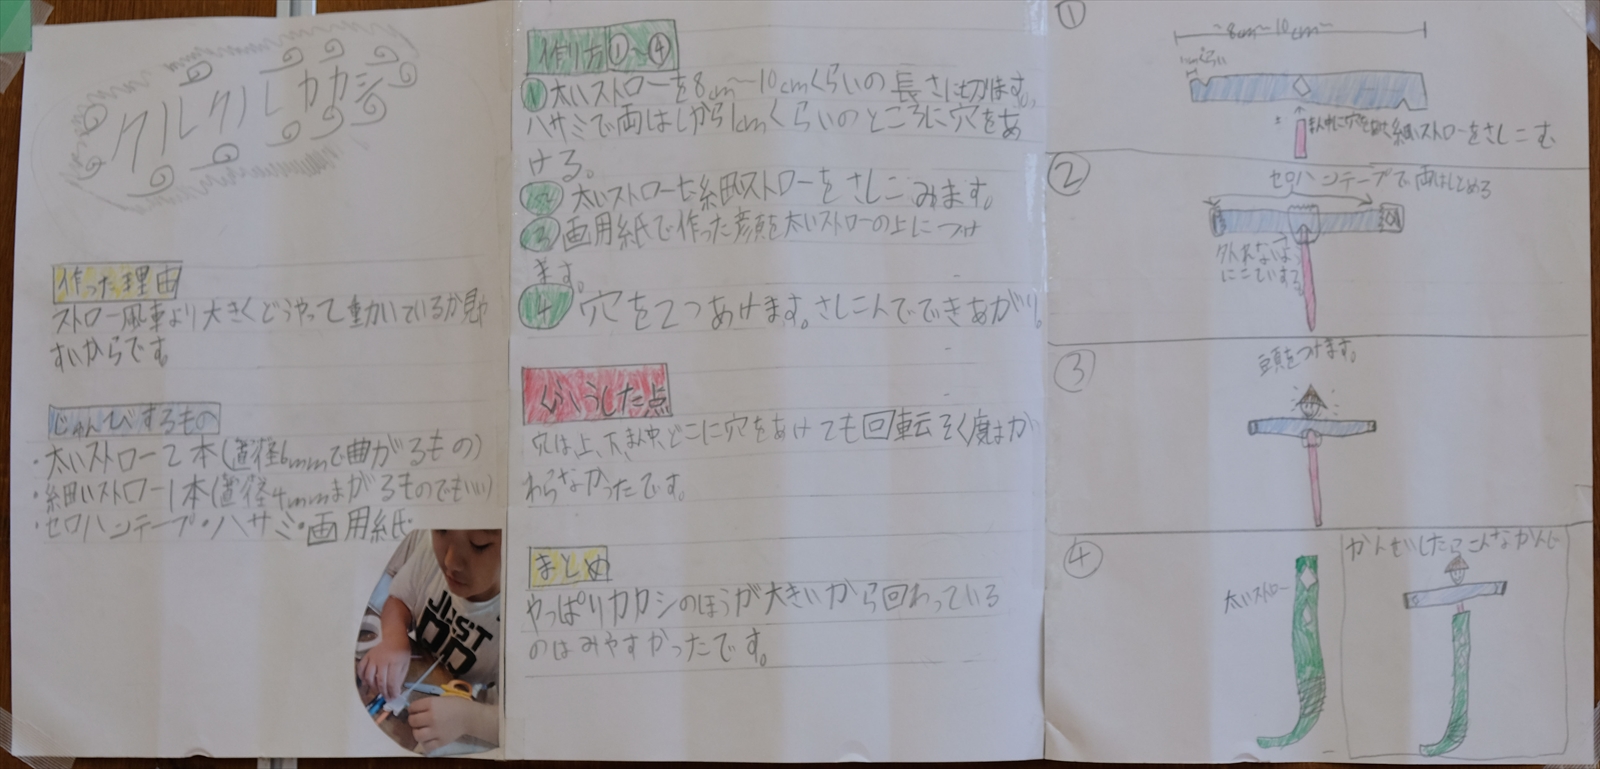 クルクルカカシ
作った理由
ストロー風車より大きくどうやって動いているか見や
すいからです。
じゅんびするもの
・太いストロー2本(直径6mmで曲がるもの)
・細いストロー1本(直径4mmまがるものでもいい)
・セロハンテープ・ハサミ・画用紙
JUST
DO
作り方①〜④
①太いストローを8cm〜10cmくらいの長さに切ります。
ハサミで両はしから1cmくらいのところに穴をあ
ける。
② 太いストローに細いストローをさしこみます。
③ 画用紙で作った顔を太いストローの上につけ
ます。
④ 穴を2つあけます。さしこんでできあがり。
くふうした点
穴は上、下、まん中、どこに穴をあけても回転そく度はか
わらなかったです。
まとめ
やっぱりカカシのほうが大きいから回わっている
のはみやすかったです。
①
~8cm~10cm~
1cmくらい
まん中に穴を 細いストローをさしこむ
②
セロハンテープで両はしとめる
外れないよう
にこていする
③
頭をつけます。
④
太いストロー
かんせいしたらこんなかんじ